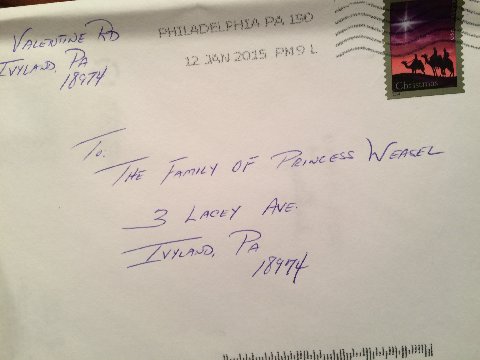 Valentine Rd
Ivyland, PA
18974
PHILADELPHIA PA 190
12 JAN 2015 PM 9 L
Christmas
To:
The Family of Princess Weasel
3 Lacey Ave.
Ivyland, PA
18974